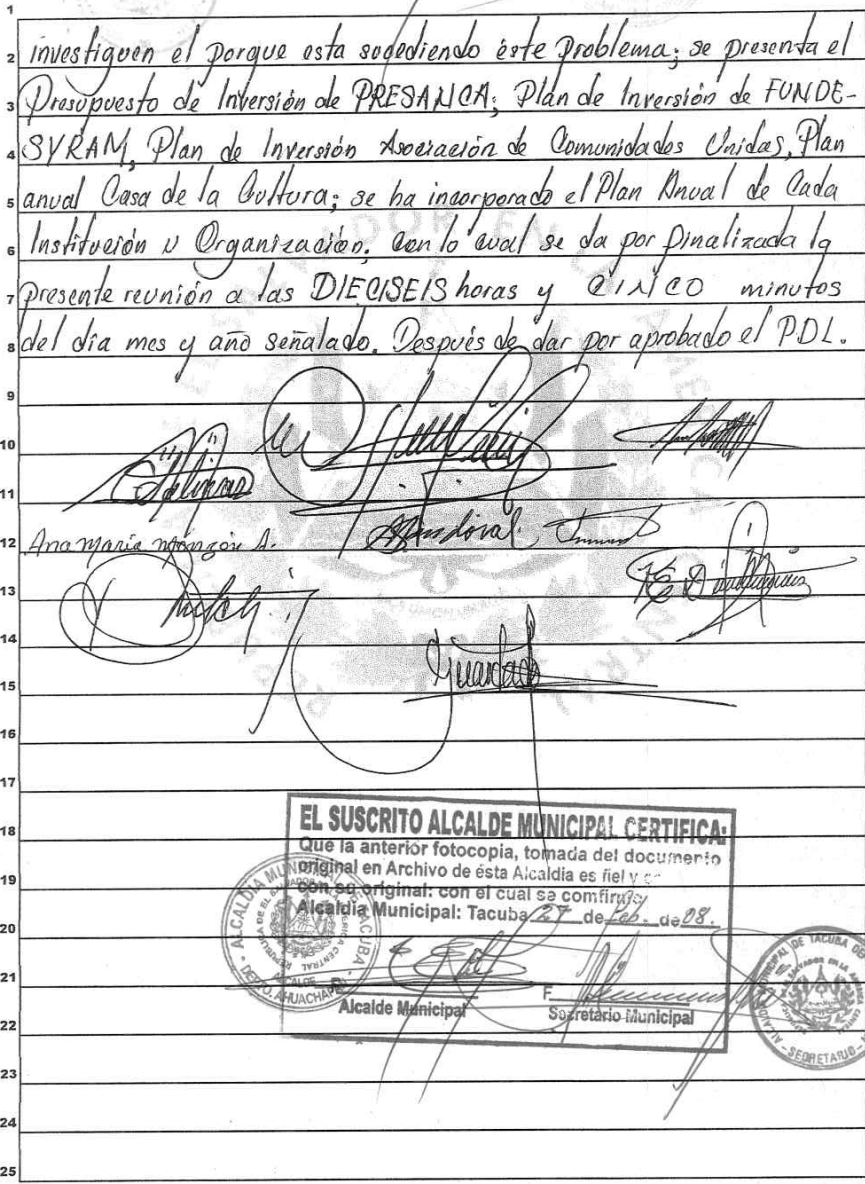 1
2 investiguen el porque esta sucediendo éste Problema; se presenta el
3 Presupuesto de Inversión de PRESANCA; Plan de Inversión de FUNDE-
4 SYRAM, Plan de Inversión Asociación de Comunidades Unidas, Plan
5 anual Casa de la Cultura; se ha incorporado el Plan Anual de Cada
6 Institución u Organización, con lo cual se da por finalizada la
7 presente reunión a las DIECISEIS horas y CINCO minutos
8 del día mes y año señalado. Después de dar por aprobado el PDL.
9
10
11
Sandoval
12 Ana María Monzón A.
13
14
Guardado
15
16
17
EL SUSCRITO ALCALDE MUNICIPAL CERTIFICA:
18 Que la anterior fotocopia, tomada del documento
original en Archivo de ésta Alcaldia es fiel y
19 con su original: con el cual se comfirma
Alcaldia Municipal: Tacuba 27 de Feb. de 08.
20
ALCALDIA MUNICIPAL DE TACUBA
REPUBLICA DE EL SALVADOR EN LA AMERICA CENTRAL
ALCALDE
DEPTO. AHUACHAPAN
21
F.
Alcalde Municipal Secretario Municipal
22
DE TACUBA
SECRETARIO
23
24
25